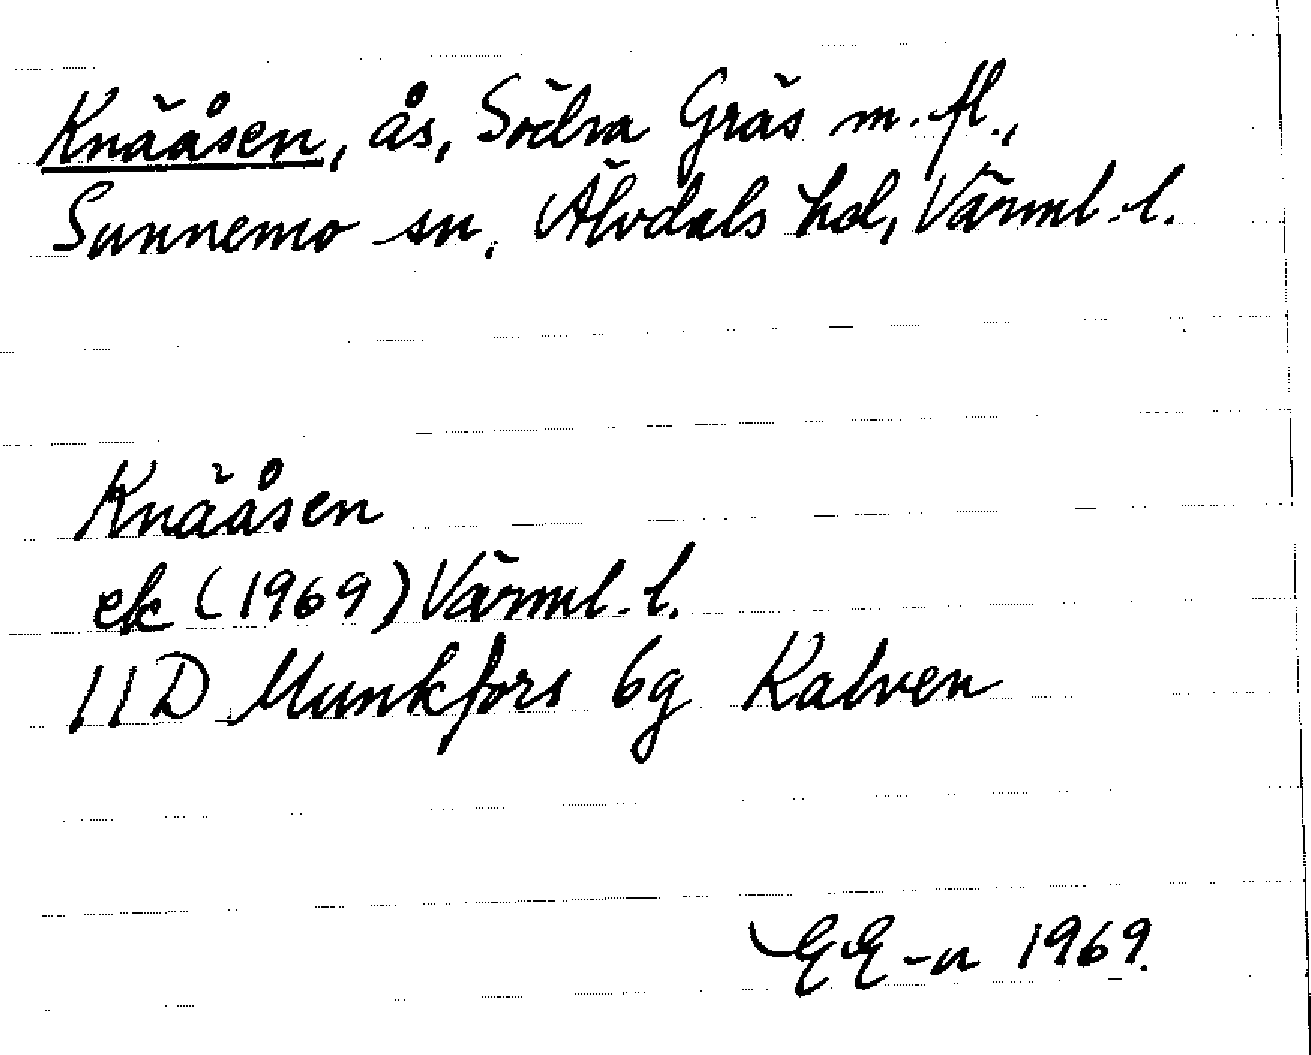 Knääsen, ås, Södra Gräs m. fl.,
Sunnemo sn, Älvdals hd, Värml. l.
Knäåsen
ek (1969) Värml. l.
11D Munkfors 6g Kalven
EE-n 1969.